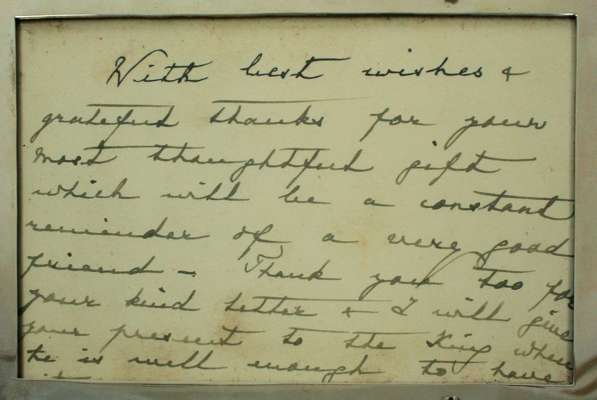 With best wishes &
grateful thanks for your
most thoughtful gift
which will be a constant
reminder of a very good
friend - Thank you too for
your kind letter & I will give
your present to the King when
he is well enough to have